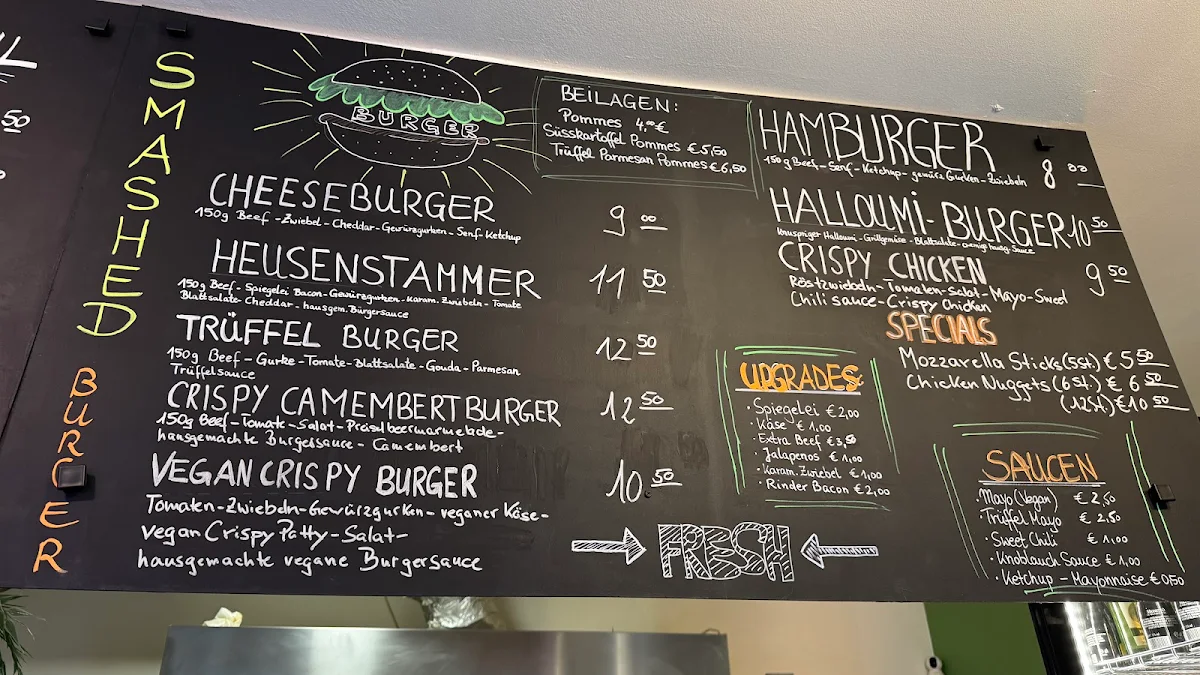 50
SMASHED
BURGER
BURGER
CHEESEBURGER 9 00
150g Beef - Zwiebel - Cheddar - Gewürzgurken - Senf - Ketchup
HEUSENSTAMMER 11 50
150g Beef - Spiegelei Bacon - Gewürzgurken - karam. Zwiebeln - Tomate
Blattsalate - Cheddar - hausgem. Bürgersauce
TRÜFFEL BURGER 12 50
150g Beef - Gurke - Tomate - Blattsalate - Gouda - Parmesan
Trüffelsauce
CRISPY CAMEMBERTBURGER 12 50
150g Beef - Tomate - Salat - Preiselbeermarmelade -
hausgemachte Burgersauce - Camembert
VEGAN CRISPY BURGER 10 50
Tomaten - Zwiebeln - Gewürzgurken - veganer Käse -
vegan Crispy Patty - Salat -
hausgemachte vegane Burgersauce
BEILAGEN:
Pommes 4,00 €
Süsskartoffel Pommes € 5,50
Trüffel Parmesan Pommes € 6,50
HAMBURGER 8 00
150g Beef - Senf - Ketchup - gewürz Gurken - Zwiebeln
HALLOUMI-BURGER 10 50
knuspriger Halloumi - Grillgemüse - Blattsalate - honig Sauce
CRISPY CHICKEN 9 50
Röstzwiebeln - Tomaten - Salat - Mayo - Sweet
Chili sauce - Crispy Chicken
SPECIALS
Mozzarella Sticks (5St.) € 5 50
Chicken Nuggets (6 St.) € 6 50
(12St.) € 10 50
UPGRADES
· Spiegelei € 2,00
· Käse € 1,00
· Extra Beef € 3,50
· Jalapenos € 1,00
· Karam. Zwiebel € 1,00
· Rinder Bacon € 2,00
SAUCEN
· Mayo (Vegan) € 2,50
· Trüffel Mayo € 2,50
· Sweet Chili € 1,00
· Knoblauch Sauce € 1,00
· Ketchup - Mayonnaise € 0,50
FRESH